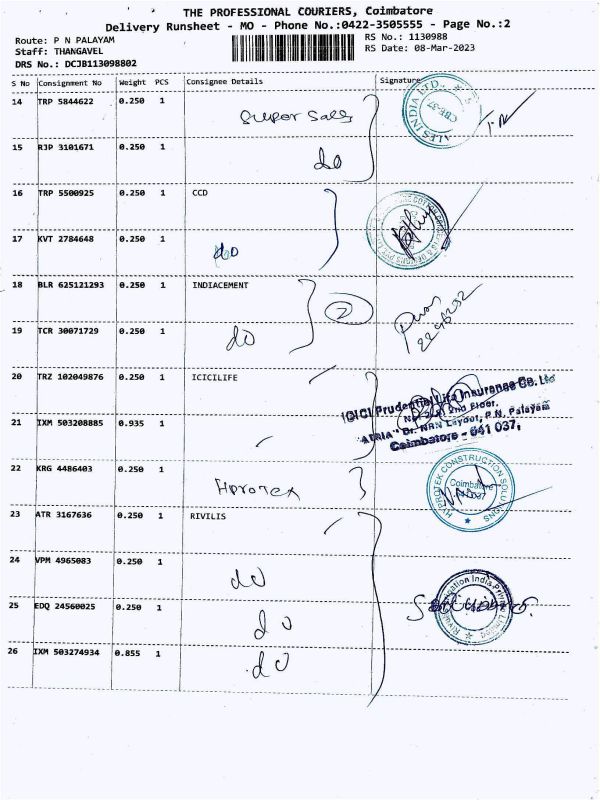 THE PROFESSIONAL COURIERS, Coimbatore
Delivery Runsheet - MO - Phone No.:0422-3505555 - Page No.:2
Route: P N PALAYAM
RS No.: 1130988
Staff: THANGAVEL
RS Date: 08-Mar-2023
DRS No.: DCJB113098802
S No Consignment No Weight PCS Consignee Details Signature
14 TRP 5844622 0.250 1 Super Sales
ALES INDIA LTD.
CBE-37
15 RJP 3101671 0.250 1 do
16 TRP 5500925 0.250 1 CCD
17 KVT 2784648 0.250 1 do
18 BLR 625121293 0.250 1 INDIACEMENT
2
19 TCR 30071729 0.250 1 do
20 TRZ 102049876 0.250 1 ICICILIFE
ICICI Prudential Life Insurance Co. Ltd
2nd Floor,
21 IXM 503208885 0.935 1
"ATRIA" Dr. NRN Layout, P.N. Palayam
Coimbatore - 641 037,
22 KRG 4486403 0.250 1 Hprotex
HYPROTEK CONSTRUCTION SOLUTIONS
Coimbatore
23 ATR 3167636 0.250 1 RIVILIS
24 VPM 4965083 0.250 1 do
25 EDQ 24560025 0.250 1 do
India Private Limited
26 IXM 503274934 0.855 1 do